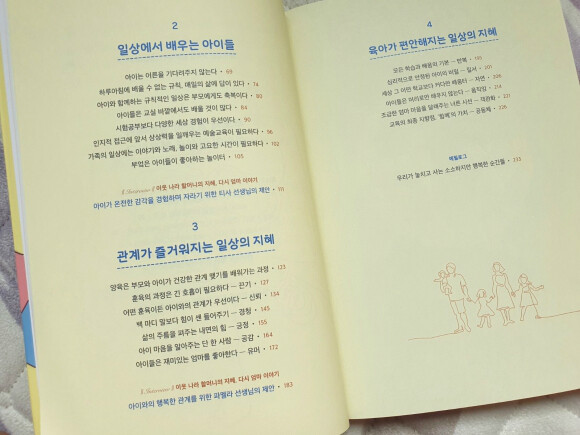 2
일상에서 배우는 아이들
아이는 어른을 기다려주지 않는다 • 69
하루아침에 배울 수 없는 규칙, 매일의 삶에 답이 있다 • 74
아이와 함께하는 규칙적인 일상은 부모에게도 축복이다 • 80
아이들은 교실 바깥에서도 배울 것이 많다 • 84
시험공부보다 다양한 세상 경험이 우선이다 • 90
인지적 접근에 앞서 상상력을 일깨우는 예술교육이 필요하다 • 96
가족의 일상에는 이야기와 노래, 놀이와 고요한 시간이 필요하다 • 102
부엌은 아이들이 좋아하는 놀이터 • 105
이웃 나라 할머니의 지혜, 다시 엄마 이야기
아이가 온전한 감각을 경험하며 자라기 위한 티사 선생님의 제안 • 111
3
관계가 즐거워지는 일상의 지혜
양육은 부모와 아이가 건강한 관계 맺기를 배워가는 과정 • 123
훈육의 과정은 긴 호흡이 필요하다 — 끈기 • 127
어떤 훈육이든 아이와의 관계가 우선이다 — 신뢰 • 134
백 마디 말보다 힘이 센 들어주기 — 경청 • 145
삶의 주름을 펴주는 내면의 힘 — 긍정 • 155
아이 마음을 알아주는 단 한 사람 — 공감 • 164
아이들은 재미있는 엄마를 좋아한다 — 유머 • 172
이웃 나라 할머니의 지혜, 다시 엄마 이야기
아이와의 행복한 관계를 위한 파멜라 선생님의 제안 • 183
4
육아가 편안해지는 일상의 지혜
모든 학습과 배움의 기본 — 반복 • 195
심리적으로 안정된 아이의 비밀 — 질서 • 201
세상 그 어떤 학교보다 커다란 배움터 — 자연 •
아이들은 머리로만 배우지 않는다 — 움직임 •
조급한 엄마 마음을 말해주는 너른 시선 — 객관화 •
교육의 최종 지향점, '함께'의 가치 — 공동체 •
에필로그
우리가 놓치고 사는 소소하지만 행복한 순간들 • 233